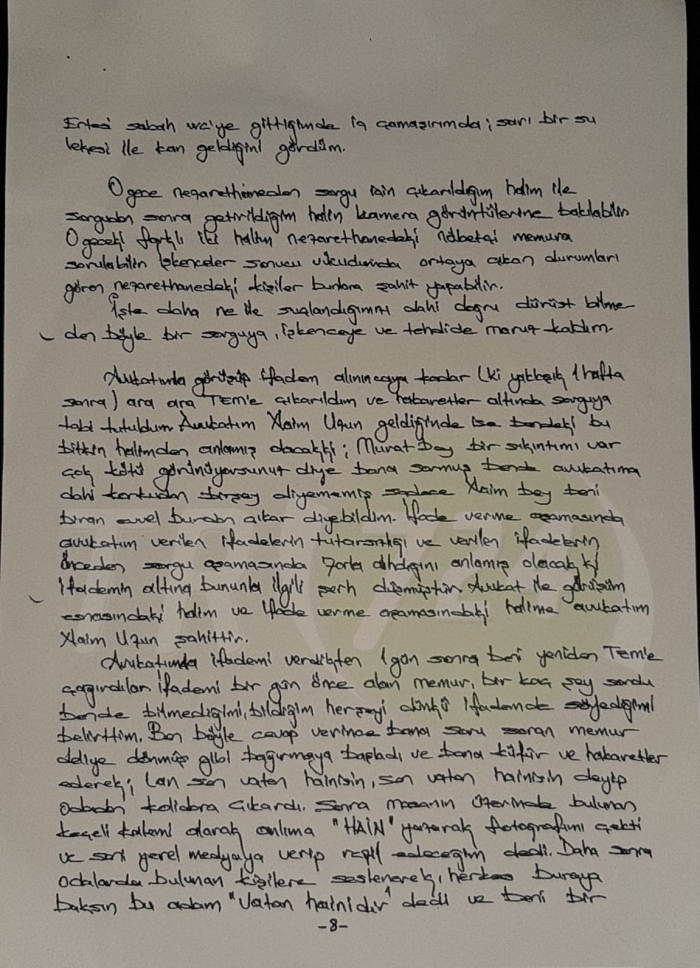 Ertesi sabah wc'ye gittiğimde iç çamaşırımda; sarı bir su
lekesi ile kan geldiğini gördüm.
O gece nezarethaneden sorgu için çıkarıldığım halim ile
sorgudan sonra getirildiğim halin kamera görüntülerine bakılabilir
O geceki farklı iki halim nezarethanedeki nöbetçi memura
sorulabilir işkenceler sonucu vücudumda ortaya çıkan durumları
gören nezarethanedeki kişiler bunlara şahit yapabilir.
İşte daha ne ile suçlandığımı dahi doğru dürüst bilme
den böyle bir sorguya, işkenceye ve tehdide maruz kaldım.
Avukatımla görüşüp ifadem alınıncaya kadar (ki yaklaşık 1 hafta
sonra) ara ara Tem'e çıkarıldım ve hakaretler altında sorguya
tabi tutuldum. Avukatım Naim Uzun geldiğinde ise bendeki bu
bitkin halimden anlamış olacakki; Murat Bey bir sıkıntımı var
çok kötü görünüyorsunuz diye bana sormuş bende avukatıma
dahi korkudan birşey diyememiş sadece Naim bey beni
biran evvel buradan çıkar diyebildim. İfade verme aşamasında
avukatım verilen ifadelerin tutarsızlığı ve verilen ifadelerin
önceden sorgu aşamasında zorla alındığını anlamış olacak ki
ifademin altına bununla ilgili şerh düşmüştür. Avukat ile görüşüm
esnasındaki halim ve ifade verme aşamasındaki halime avukatım
Naim Uzun şahittir.
Avukatımla ifademi verdikten 1 gün sonra beni yeniden Tem'e
çağırdılar. İfademi bir gün önce alan memur, bir kaç şey sordu
bende bilmediğimi, bildiğim herşeyi dünkü ifademde söylediğimi
belirttim. Ben böyle cevap verince bana soru soran memur
deliye dönmüş gibi bağırmaya başladı ve bana küfür ve hakaretler
ederek; lan sen vatan hainisin, sen vatan hainisin deyip
odadan koridora çıkardı. Sonra masanın üzerinde bulunan
keçeli kalemi alarak alnıma "HAİN" yazarak fotoğrafımı çekti
ve seni yerel medyaya verip rezil edeceğim dedi. Daha sonra
odalarda bulunan kişilere seslenerek, herkes buraya
baksın bu adam "Vatan hainidir" dedi ve beni bir
-8-